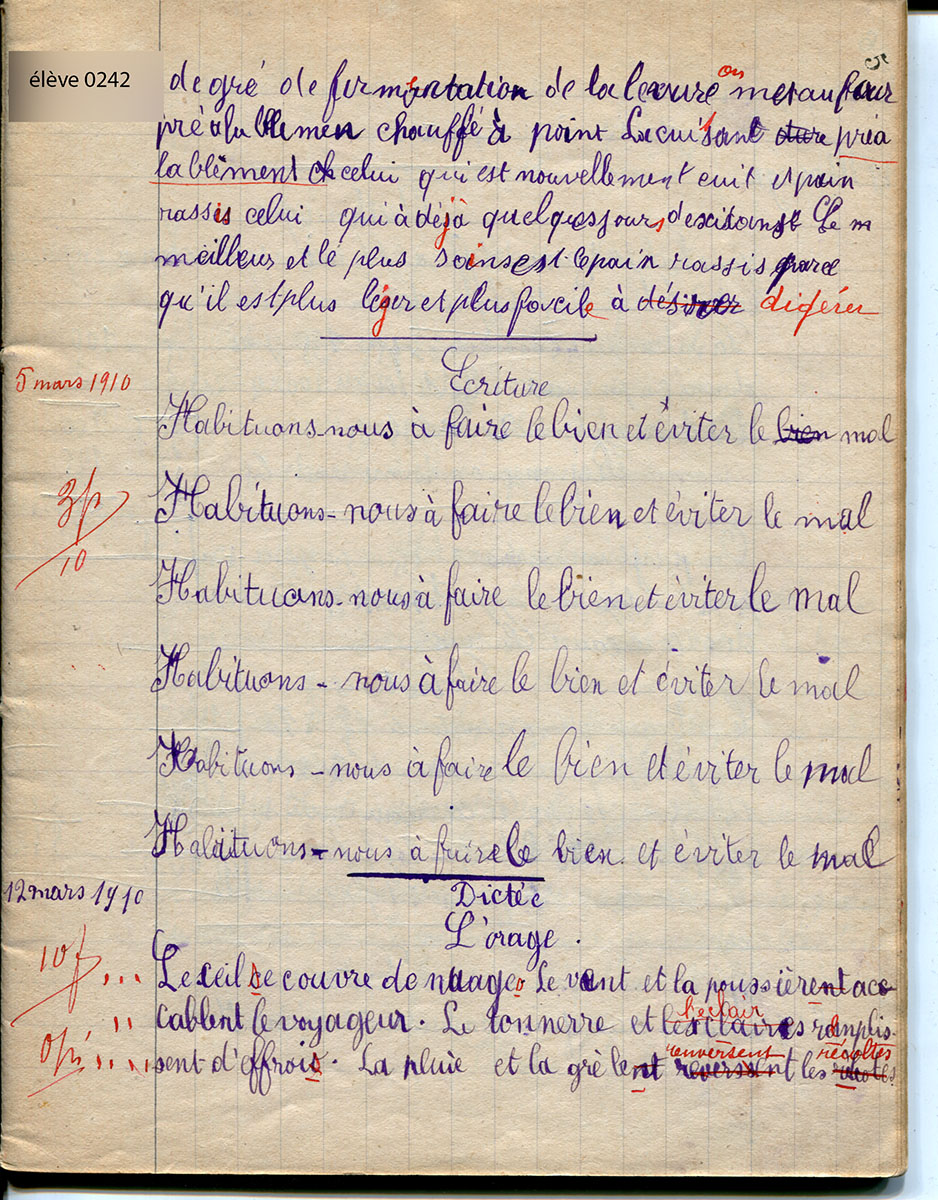 5
élève 0242
degré de fermentation de la levure on met au four
préalablemen chauffé à point La cuisant préa
lablement celui qui est nouvellement cuit et pain
rassis celui qui à déjà quelques jours d'existanse Le m
meilleur et le plus sains est le pain rassis parce
qu'il est plus léger et plus facile à désirer digérer
5 mars 1910
Ecriture
Habituons-nous à faire le bien et éviter le bien mal
3p/10
Habituons-nous à faire le bien et éviter le mal
Habituons-nous à faire le bien et éviter le mal
Habituons-nous à faire le bien et éviter le mal
Habituons-nous à faire le bien et éviter le mal
Habituons-nous à faire le bien et éviter le mal
12 mars 1910
Dictée
L'orage.
10f
Le ceil se couvre de nuages Le vent et la poussièrent acc
cablent le voyageur. Le tonnerre et l'éclair remplis-
sent d'effrois. La pluie et la grèlent renversent les récoltes